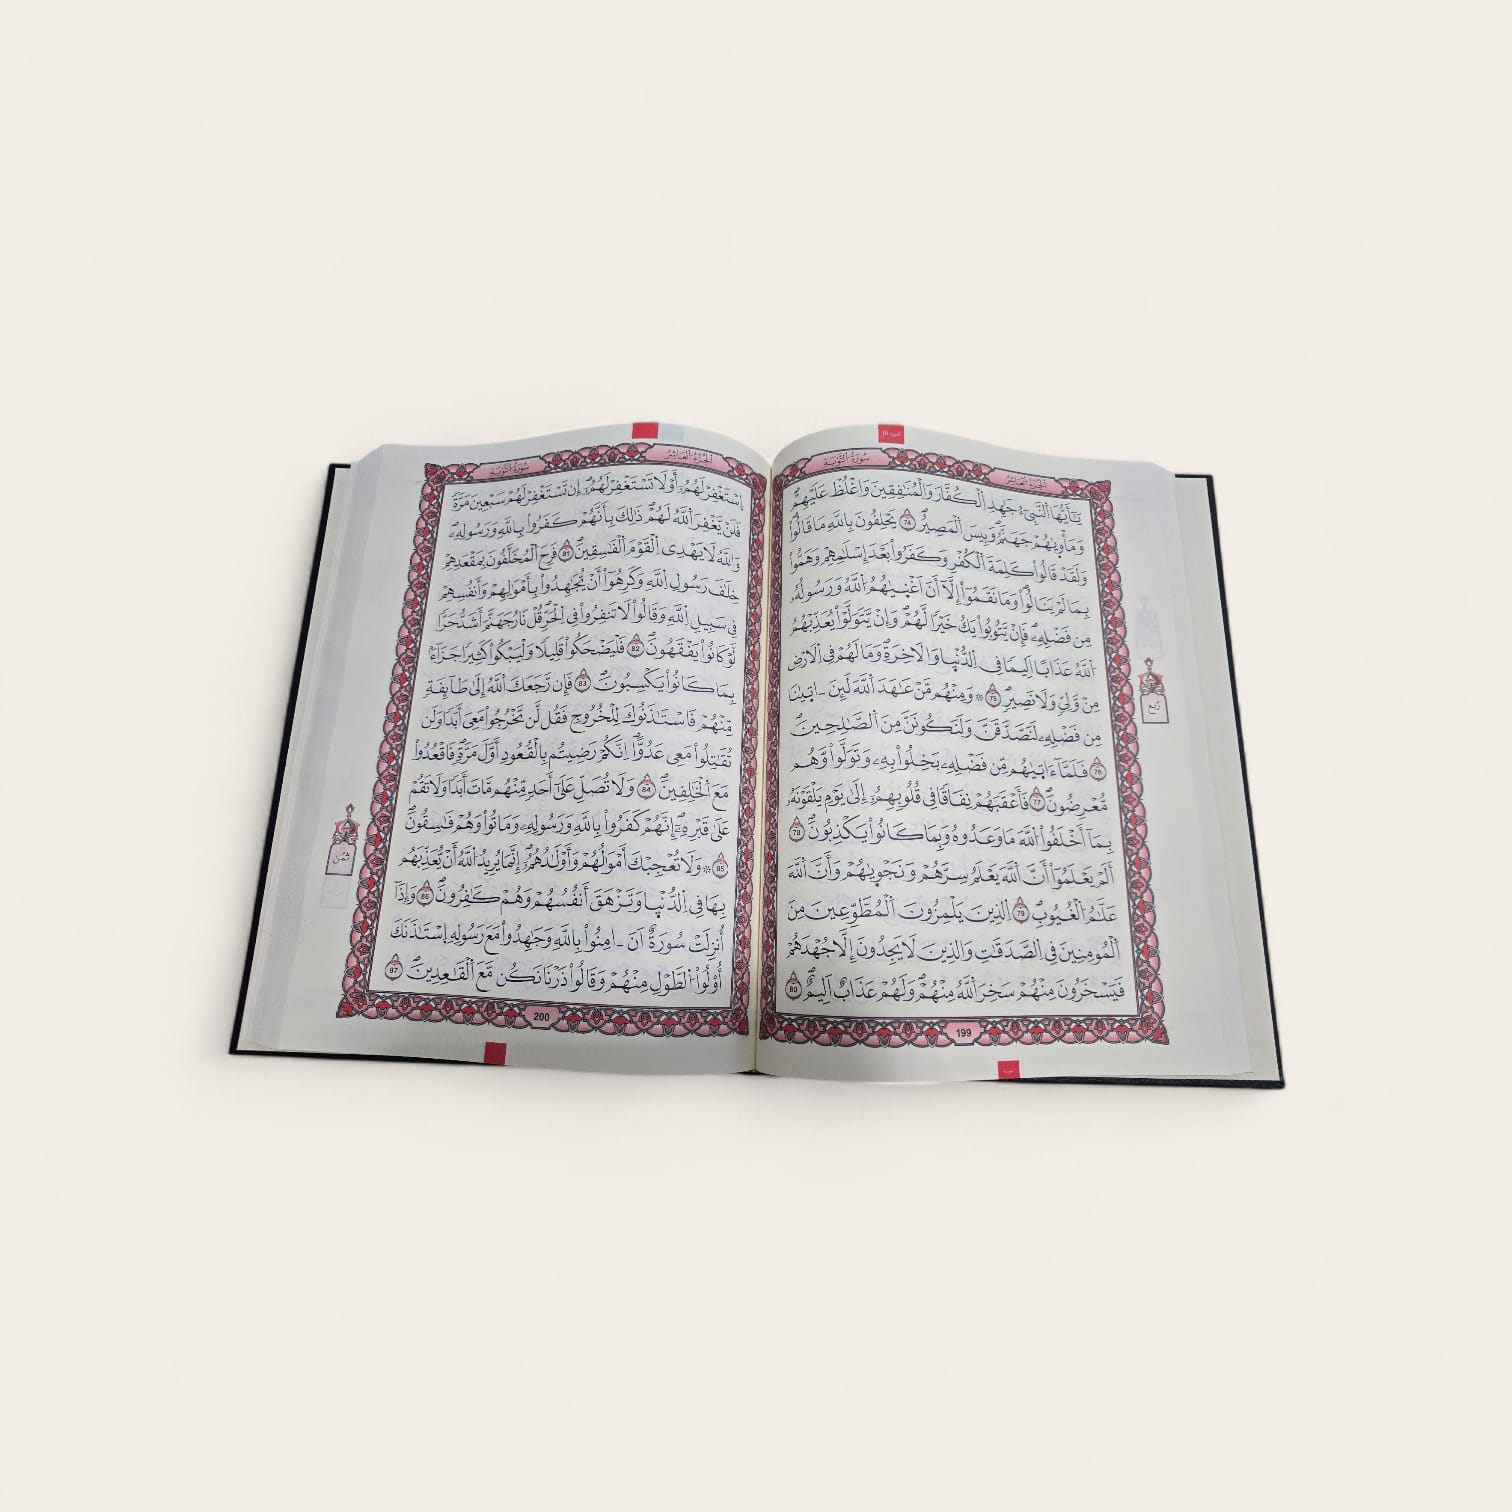 سُورَةُ التَّوْبَةِ
الجُزْءُ العَاشِرُ
يَٰٓأَيُّهَا اَ۬لنَّبِےٓءُ جَٰهِدِ اِ۬لْكُفَّارَ وَالْمُنَٰفِقِينَ وَاغْلُظْ عَلَيْهِمْۖ
وَمَأْو۪يٰهُمْ جَهَنَّمُۖ وَبِيسَ اَ۬لْمَصِيرُۖ 74 يَحْلِفُونَ بِاللَّهِ مَا قَالُواْ
وَلَقَدْ قَالُواْ كَلِمَةَ اَ۬لْكُفْرِ وَكَفَرُواْ بَعْدَ إِسْلَٰمِهِمْ وَهَمُّواْ
بِمَا لَمْ يَنَالُواْۖ وَمَا نَقَمُوٓاْ إِلَّآ أَنَ اَغْن۪يٰهُمُ اُ۬للَّهُ وَرَسُولُهُۥ
مِن فَضْلِهِۦۖ فَإِنْ يَّتُوبُواْ يَكُ خَيْراٗ لَّهُمْۖ وَإِنْ يَّتَوَلَّوْاْ يُعَذِّبْهُمُ
اُ۬للَّهُ عَذَاباً اَلِيماٗ فِے اِ۬لدُّنْي۪ا وَالَاخِرَةِۖ وَمَا لَهُمْ فِے اِ۬لَارْضِ
مِنْ وَّلِيّٖ وَلَا نَصِيرٖۖ 75 ۞ وَمِنْهُم مَّنْ عَٰهَدَ اَ۬للَّهَ لَئِنَ ـ ات۪يٰنَا
مِن فَضْلِهِۦ لَنَصَّدَّقَنَّ وَلَنَكُونَنَّ مِنَ اَ۬لصَّٰلِحِينَۖ
76 فَلَمَّآ ءَات۪يٰهُم مِّن فَضْلِهِۦ بَخِلُواْ بِهِۦ وَتَوَلَّواْ وَّهُم
مُّعْرِضُونَۖ 77 فَأَعْقَبَهُمْ نِفَاقاٗ فِے قُلُوبِهِمُۥٓ إِلَىٰ يَوْمِ يَلْقَوْنَهُۥ
بِمَآ أَخْلَفُواْ اُ۬للَّهَ مَا وَعَدُوهُ وَبِمَا كَانُواْ يَكْذِبُونَۖ 78
أَلَمْ يَعْلَمُوٓاْ أَنَّ اَ۬للَّهَ يَعْلَمُ سِرَّهُمْ وَنَجْو۪يٰهُمْ وَأَنَّ اَ۬للَّهَ
عَلَّٰمُ اُ۬لْغُيُوبِۖ 79 اِ۬لذِينَ يَلْمِزُونَ اَ۬لْمُطَّوِّعِينَ مِنَ
اَ۬لْمُومِنِينَ فِے اِ۬لصَّدَقَٰتِ وَالذِينَ لَا يَجِدُونَ إِلَّا جُهْدَهُمْ
فَيَسْخَرُونَ مِنْهُمْ سَخِرَ اَ۬للَّهُ مِنْهُمْۖ وَلَهُمْ عَذَابٌ اَلِيمٌۖ 80
199
رُبُع
الجُزْءُ العَاشِرُ
سُورَةُ التَّوْبَةِ
اِ۪سْتَغْفِرْ لَهُمُۥٓ أَوْ لَا تَسْتَغْفِرْ لَهُمُۥٓۖ إِن تَسْتَغْفِرْ لَهُمْ سَبْعِينَ مَرَّةٗ
فَلَنْ يَّغْفِرَ اَ۬للَّهُ لَهُمْۖ ذَٰلِكَ بِأَنَّهُمْ كَفَرُواْ بِاللَّهِ وَرَسُولِهِۦۖ
وَاللَّهُ لَا يَهْدِے اِ۬لْقَوْمَ اَ۬لْفَٰسِقِينَۖ 81 فَرِحَ اَ۬لْمُخَلَّفُونَ بِمَقْعَدِهِمْ
خِلَٰفَ رَسُولِ اِ۬للَّهِ وَكَرِهُوٓاْ أَنْ يُّجَٰهِدُواْ بِأَمْوَٰلِهِمْ وَأَنفُسِهِمْ
فِے سَبِيلِ اِ۬للَّهِ وَقَالُواْ لَا تَنفِرُواْ فِے اِ۬لْحَرِّۖ قُلْ نَارُ جَهَنَّمَ أَشَدُّ حَرّاٗ
لَّوْ كَانُواْ يَفْقَهُونَۖ 82 فَلْيَضْحَكُواْ قَلِيلاٗ وَلْيَبْكُواْ كَثِيراٗ جَزَآءَۢ
بِمَا كَانُواْ يَكْسِبُونَۖ 83 فَإِن رَّجَعَكَ اَ۬للَّهُ إِلَىٰ طَآئِفَةٖ
مِّنْهُمْ فَاسْتَـٰٔذَنُوكَ لِلْخُرُوجِ فَقُل لَّن تَخْرُجُواْ مَعِے أَبَداٗ وَلَن
تُقَٰتِلُواْ مَعِے عَدُوّاًۖ اِنَّكُمْ رَضِيتُم بِالْقُعُودِ أَوَّلَ مَرَّةٖ فَاقْعُدُواْ
مَعَ اَ۬لْخَٰلِفِينَۖ 84 وَلَا تُصَلِّ عَلَىٰٓ أَحَدٖ مِّنْهُم مَّاتَ أَبَداٗ وَلَا تَقُمْ
عَلَىٰ قَبْرِهِۦٓۖ إِنَّهُمْ كَفَرُواْ بِاللَّهِ وَرَسُولِهِۦ وَمَاتُواْ وَهُمْ فَٰسِقُونَۖ
85 ۞ وَلَا تُعْجِبْكَ أَمْوَٰلُهُمْ وَأَوْلَٰدُهُمُۥٓۖ إِنَّمَا يُرِيدُ اُ۬للَّهُ أَنْ يُّعَذِّبَهُم
بِهَا فِے اِ۬لدُّنْي۪ا وَتَزْهَقَ أَنفُسُهُمْ وَهُمْ كَٰفِرُونَۖ 86 وَإِذَآ
أُنزِلَتْ سُورَةٌ اَنَ ـ امِنُواْ بِاللَّهِ وَجَٰهِدُواْ مَعَ رَسُولِهِ اِ۪سْتَـٰٔذَنَكَ
أُوْلُواْ اُ۬لطَّوْلِ مِنْهُمْ وَقَالُواْ ذَرْنَا نَكُن مَّعَ اَ۬لْقَٰعِدِينَۖ 87
200
ثُمُن